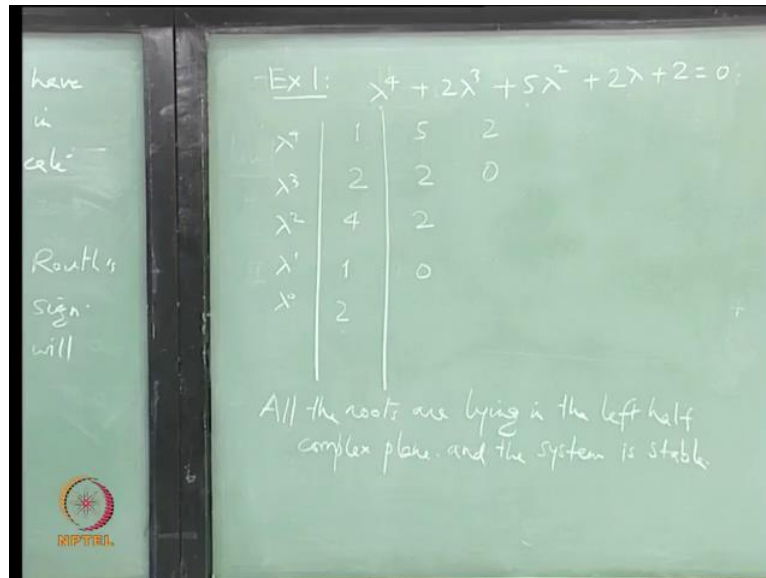 have
in
Routh's
sign.
will
Ex 1: λ⁴ + 2λ³ + 5λ² + 2λ + 2 = 0
λ⁴ 1 5 2
λ³ 2 2 0
λ² 4 2
λ¹ 1 0
λ⁰ 2
All the roots are lying in the left half
complex plane. and the system is stable.
NPTEL